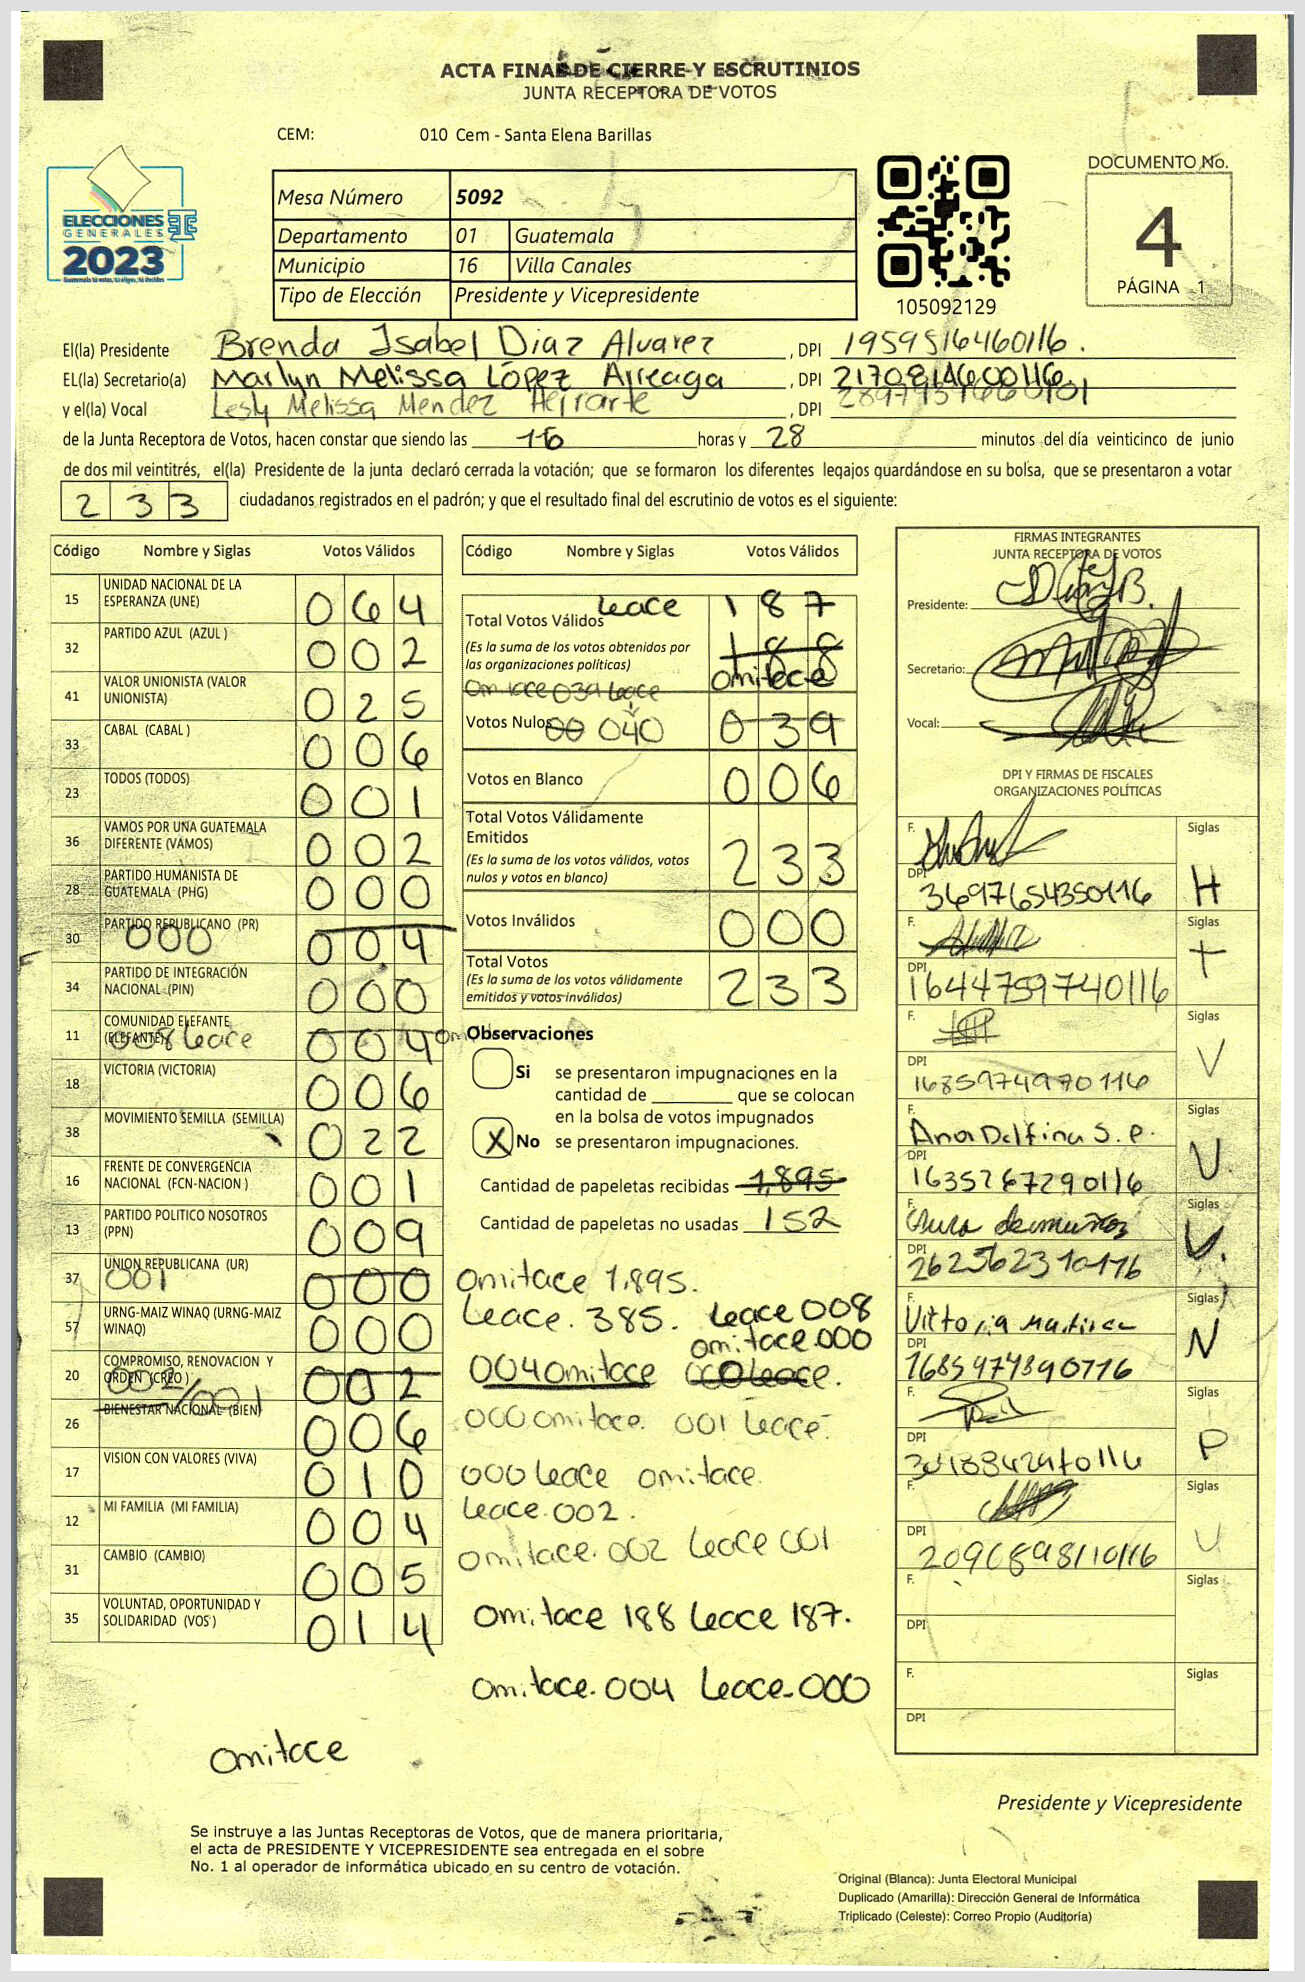 ACTA FINAL DE CIERRE Y ESCRUTINIOS
JUNTA RECEPTORA DE VOTOS
CEM: 010 Cem - Santa Elena Barillas
ELECCIONES
GENERALES
2023
Mesa Número 5092
Departamento 01 Guatemala
Municipio 16 Villa Canales
Tipo de Elección Presidente y Vicepresidente
105092129
DOCUMENTO No.
4
PÁGINA 1
El(la) Presidente Brenda Isabel Diaz Alvarez , DPI 1959516460116.
EL(la) Secretario(a) Marlyn Melissa López Arreaga , DPI 2170814600116
y el(la) Vocal Lesly Melissa Mendez Herrarte , DPI
de la Junta Receptora de Votos, hacen constar que siendo las 16 horas y 28 minutos del día veinticinco de junio
de dos mil veintitrés, el(la) Presidente de la junta declaró cerrada la votación; que se formaron los diferentes legajos guardándose en su bolsa, que se presentaron a votar
233 ciudadanos registrados en el padrón; y que el resultado final del escrutinio de votos es el siguiente:
Código Nombre y Siglas Votos Válidos
15 UNIDAD NACIONAL DE LA ESPERANZA (UNE) 064
32 PARTIDO AZUL (AZUL ) 002
41 VALOR UNIONISTA (VALOR UNIONISTA) 025
33 CABAL (CABAL ) 006
23 TODOS (TODOS) 001
36 VAMOS POR UNA GUATEMALA DIFERENTE (VAMOS) 002
28 PARTIDO HUMANISTA DE GUATEMALA (PHG) 000
30 PARTIDO REPUBLICANO (PR) 000 004
34 PARTIDO DE INTEGRACIÓN NACIONAL (PIN) 000
11 COMUNIDAD ELEFANTE (ELEFANTE) 008 leace 004
18 VICTORIA (VICTORIA) 006
38 MOVIMIENTO SEMILLA (SEMILLA) 022
16 FRENTE DE CONVERGENCIA NACIONAL (FCN-NACION ) 001
13 PARTIDO POLITICO NOSOTROS (PPN) 009
37 UNION REPUBLICANA (UR) 001 000
57 URNG-MAIZ WINAQ (URNG-MAIZ WINAQ) 000
20 COMPROMISO, RENOVACION Y ORDEN (CREO ) 002/001 002
26 BIENESTAR NACIONAL (BIEN) 006
17 VISION CON VALORES (VIVA) 010
12 MI FAMILIA (MI FAMILIA) 004
31 CAMBIO (CAMBIO) 005
35 VOLUNTAD, OPORTUNIDAD Y SOLIDARIDAD (VOS ) 014
omitace
Código Nombre y Siglas Votos Válidos
Total Votos Válidos leace 187
(Es la suma de los votos obtenidos por
las organizaciones políticas) 188
omitace
omitace 039 leace
Votos Nulos 00 040 039
Votos en Blanco 006
Total Votos Válidamente
Emitidos
(Es la suma de los votos válidos, votos
nulos y votos en blanco) 233
Votos Inválidos 000
Total Votos
(Es la suma de los votos válidamente
emitidos y votos inválidos) 233
Observaciones
Si se presentaron impugnaciones en la
cantidad de ________ que se colocan
en la bolsa de votos impugnados
X No se presentaron impugnaciones.
Cantidad de papeletas recibidas 1,895
Cantidad de papeletas no usadas 152
omitace 1,895.
Leace. 385. leace 008
omitace.000
004 omitace 000 leace.
000 omitace. 001 leace.
000 leace omitace.
leace.002.
omitace. 002 leace 001
omitace 188 leace 187.
omitace. 004 leace-000
FIRMAS INTEGRANTES
JUNTA RECEPTORA DE VOTOS
Presidente:
Secretario:
Vocal:
DPI Y FIRMAS DE FISCALES
ORGANIZACIONES POLÍTICAS
F. Siglas
DPI 3697654350116 H
F. Siglas
DPI 1644759740116 +
F. Siglas
DPI 1685974970116 V
F. Ana Delfina S. P. Siglas
DPI 1635267290116 U.
F. Siglas
DPI V.
F. Siglas
DPI N
F. Siglas
DPI P
F. Siglas
DPI U
F. Siglas
DPI
F. Siglas
DPI
Presidente y Vicepresidente
Se instruye a las Juntas Receptoras de Votos, que de manera prioritaria,
el acta de PRESIDENTE Y VICEPRESIDENTE sea entregada en el sobre
No. 1 al operador de informática ubicado en su centro de votación.
Original (Blanca): Junta Electoral Municipal
Duplicado (Amarilla): Dirección General de Informática
Triplicado (Celeste): Correo Propio (Auditoría)